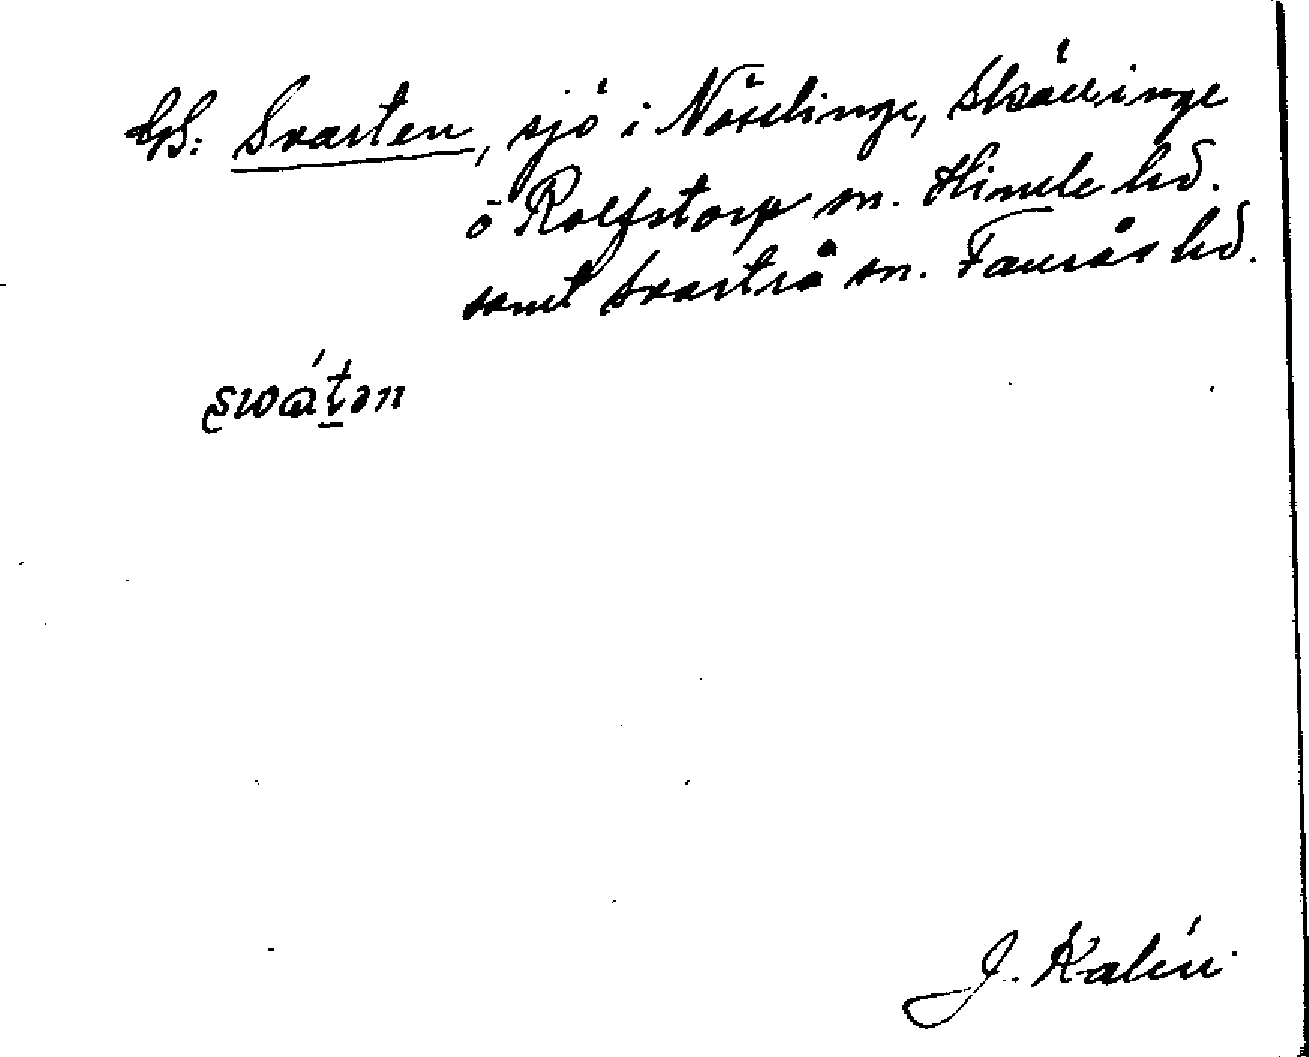 GS: Svarten, sjö i Nösslinge, Skällinge
o Rolfstorp sn. Himle hd.
samt Svartrå sn. Faurås hd.
J. Kalén